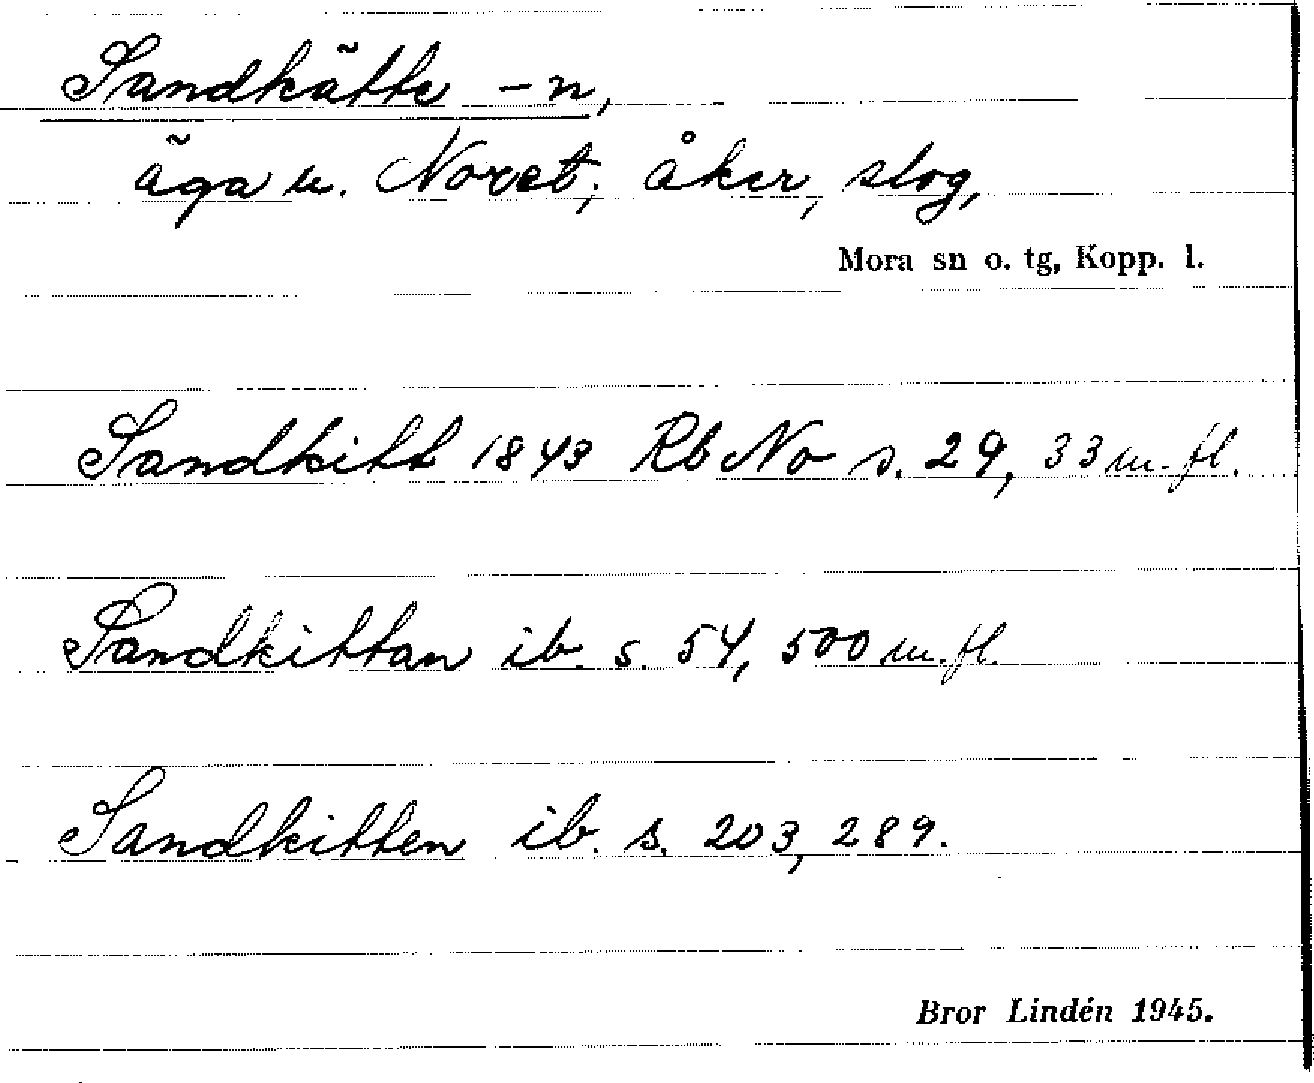 Sandkätte -n,
äga u. Noret; åker, slog,
Mora sn o. tg, Kopp. l.
Sandkitt 1843 Rb No s. 29, 33 m. fl.
Sandkittan ib. s. 54, 500 m. fl.
Sandkitten ib. s. 203, 289.
Bror Lindén 1945.